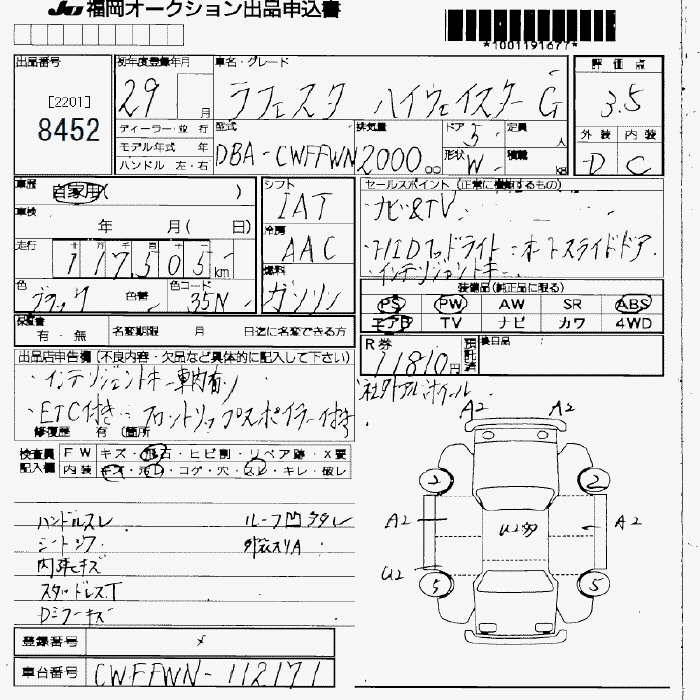 JU 福岡オークション出品申込書
*1001191677*
出品番号
[2201]
8452
初年度登録年月
29 月
車名・グレード
ラフェスタ ハイウェイスター G
評価点
3.5
外装 内装
D C
ディーラー・並行
モデル年式 年
ハンドル 左・右
型式
DBA-CWFFWN
排気量
2000 cc
ドア 5
定員 人
形状 W
積載 kg
車歴
自家用( )
車検
年 月( 日)
走行
十 万 千 百 十 一
117505 km
色
ブラック 色替
色コード
35N
シフト
IAT
冷房
AAC
燃料
ガソリン
セールスポイント (正常に機能するもの)
・ナビ&TV
・HIDヘッドライト・オートスライドドア
・インテリジェントキー
装備品(純正品に限る)
PS PW AW SR ABS
エアB TV ナビ カワ 4WD
保証書
有・無
名変期限 月 日迄に名変できる方
R券
11810円
預託済
後日品
出品店申告欄 (不良内容・欠品など具体的に記入して下さい)
・インテリジェントキー車内有り
・ETC付き・フロントリップスポイラー付き
社外アルミホイール
修復歴 有 (箇所
検査員
記入欄
FW キズ・飛石・ヒビ割・リペア跡・X要
内装 キズ・汚れ・コゲ・穴・スレ・キレ・破レ
A2 A2
2 2
A2 U2多 A2
U2
5 5
ハンドルスレ
ルーフ凹多多レ
シートシワ
内張キズ
スタッドレスT
Dミラーキズ
登録番号
車台番号
CWFFWN-112171